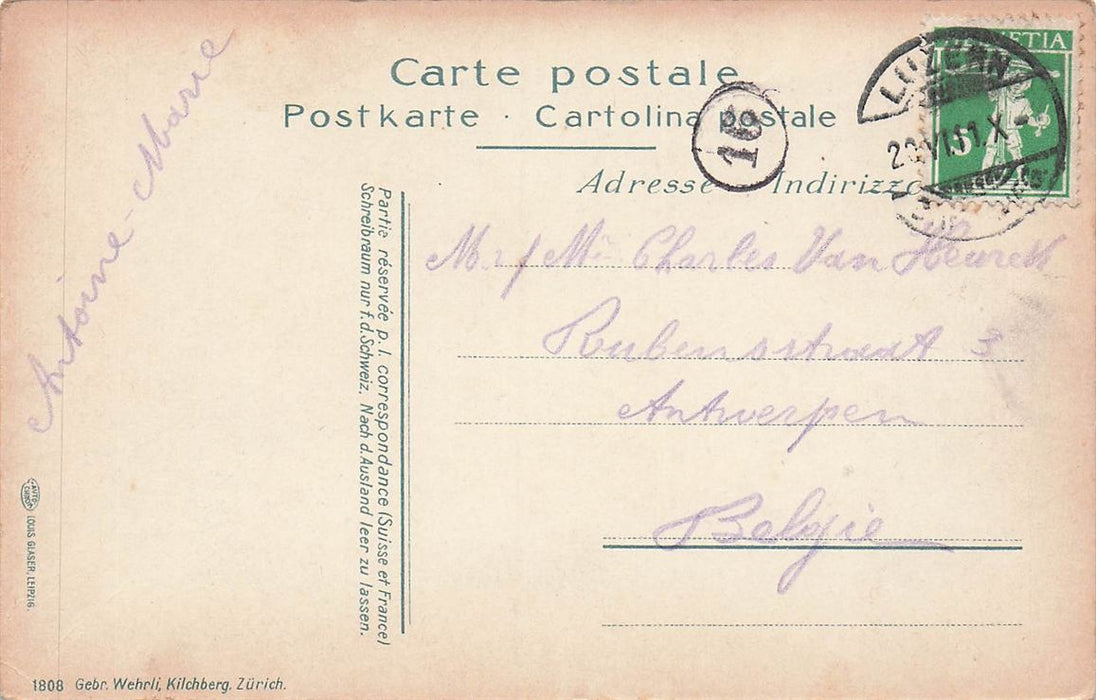 Carte postale
Postkarte · Cartolina postale
Adresse Indirizzo
HELVETIA
5
LUZERN
16
Antoine-Marie
Partie réservée p. l. correspondance (Suisse et France)
Schreibraum nur f. d. Schweiz. Nach d. Ausland leer zu lassen.
Charles Van Heurck
Rubensstraat 3
Antwerpen
België
AUTO CHROM LOUIS GLASER, LEIPZIG.
1808 Gebr. Wehrli, Kilchberg. Zürich.